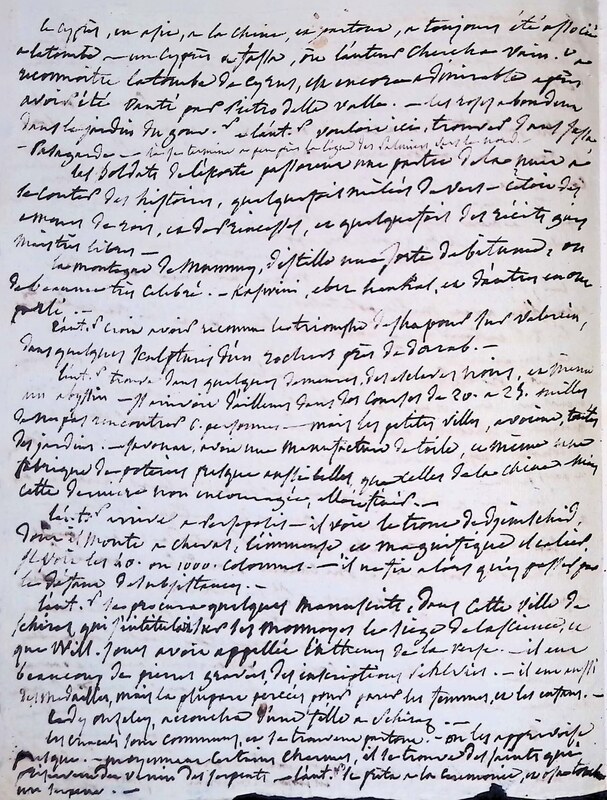 le cyprès, en asie, a la chine, et partout, a toujours été associé
a la tombe — un cyprès a fassa, ou l'auteur chercha vainement a
reconnoitre la tombe de cyrus, est encore admirable après
avoir été vanté par Pietro della valle. — les roses abondent
dans le jardin du gouv.r l'aut.r voulait ici, trouver dans fassa
— Pasagarda — la se termine a peu près la ligne des Palmiers vers le nord.
les soldats de l'escorte passerent une partie de la nuit a
se conter des histoires, quelquefois mêlées de vers — c'étoit des
amours de rois, et de Princesses, et quelquefois des récits gais
mais très libres —
la montagne de Mummy, distille une sorte de bitume, ou
de beaume très célebré. — Kazwini, ebn haukal, et d'autres en ont
parlé. —
l'aut.r croit avoir reconnu le triomphe de shapour sur Valerien,
dans quelques sculptures d'un rocher près de darab. —
l'aut.r trouva dans quelques demeures, des esclaves noirs, et même
un abyssin — il arrivoit d'ailleurs dans des courses de 20. a 25. milles
de ne pas rencontrer 6. personnes — mais les petites villes, avoient toutes
des jardins. — savonat, avoit une manufacture de toile, et même une
fabrique de poteries presque aussi belles, que celles de la chine mais
cette derniere non encouragée,
l'aut.r arrive a Persepolis — il voit le trone de Djemschid,
dont il monte a cheval, l'immense et magnifique escalier.
il voit les 40. ou 1000. colonnes. — il ne fit alors qu'y passer
le
l'aut.r se procura quelques manuscrits, dans cette ville de
schiras, qui s'intitulait sur ses monnoyes le siege de la science, et
que Will. Jones avoit appellée l'athenes de la perse. — il eut
beaucoup de pierres gravées des inscriptions Pehlvies. — il eut aussi
des medailles, mais la plupart percées pour parer les femmes, et les enfans. —
Lady ouseley, accoucha d'une fille a Schiraz
les sont communs, et se trouvent partout. — on les apprivoise
presque. — moyennant certains charmes, il se trouve des saints qui
préservent du venin des serpents — l'aut.r se prêta a la ceremonie, et osa toucher
un serpent. —